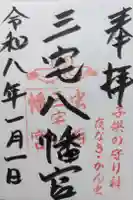 奉拝
子供の守り神
夜なき・かん虫
三宅八幡宮
令和八年一月一日